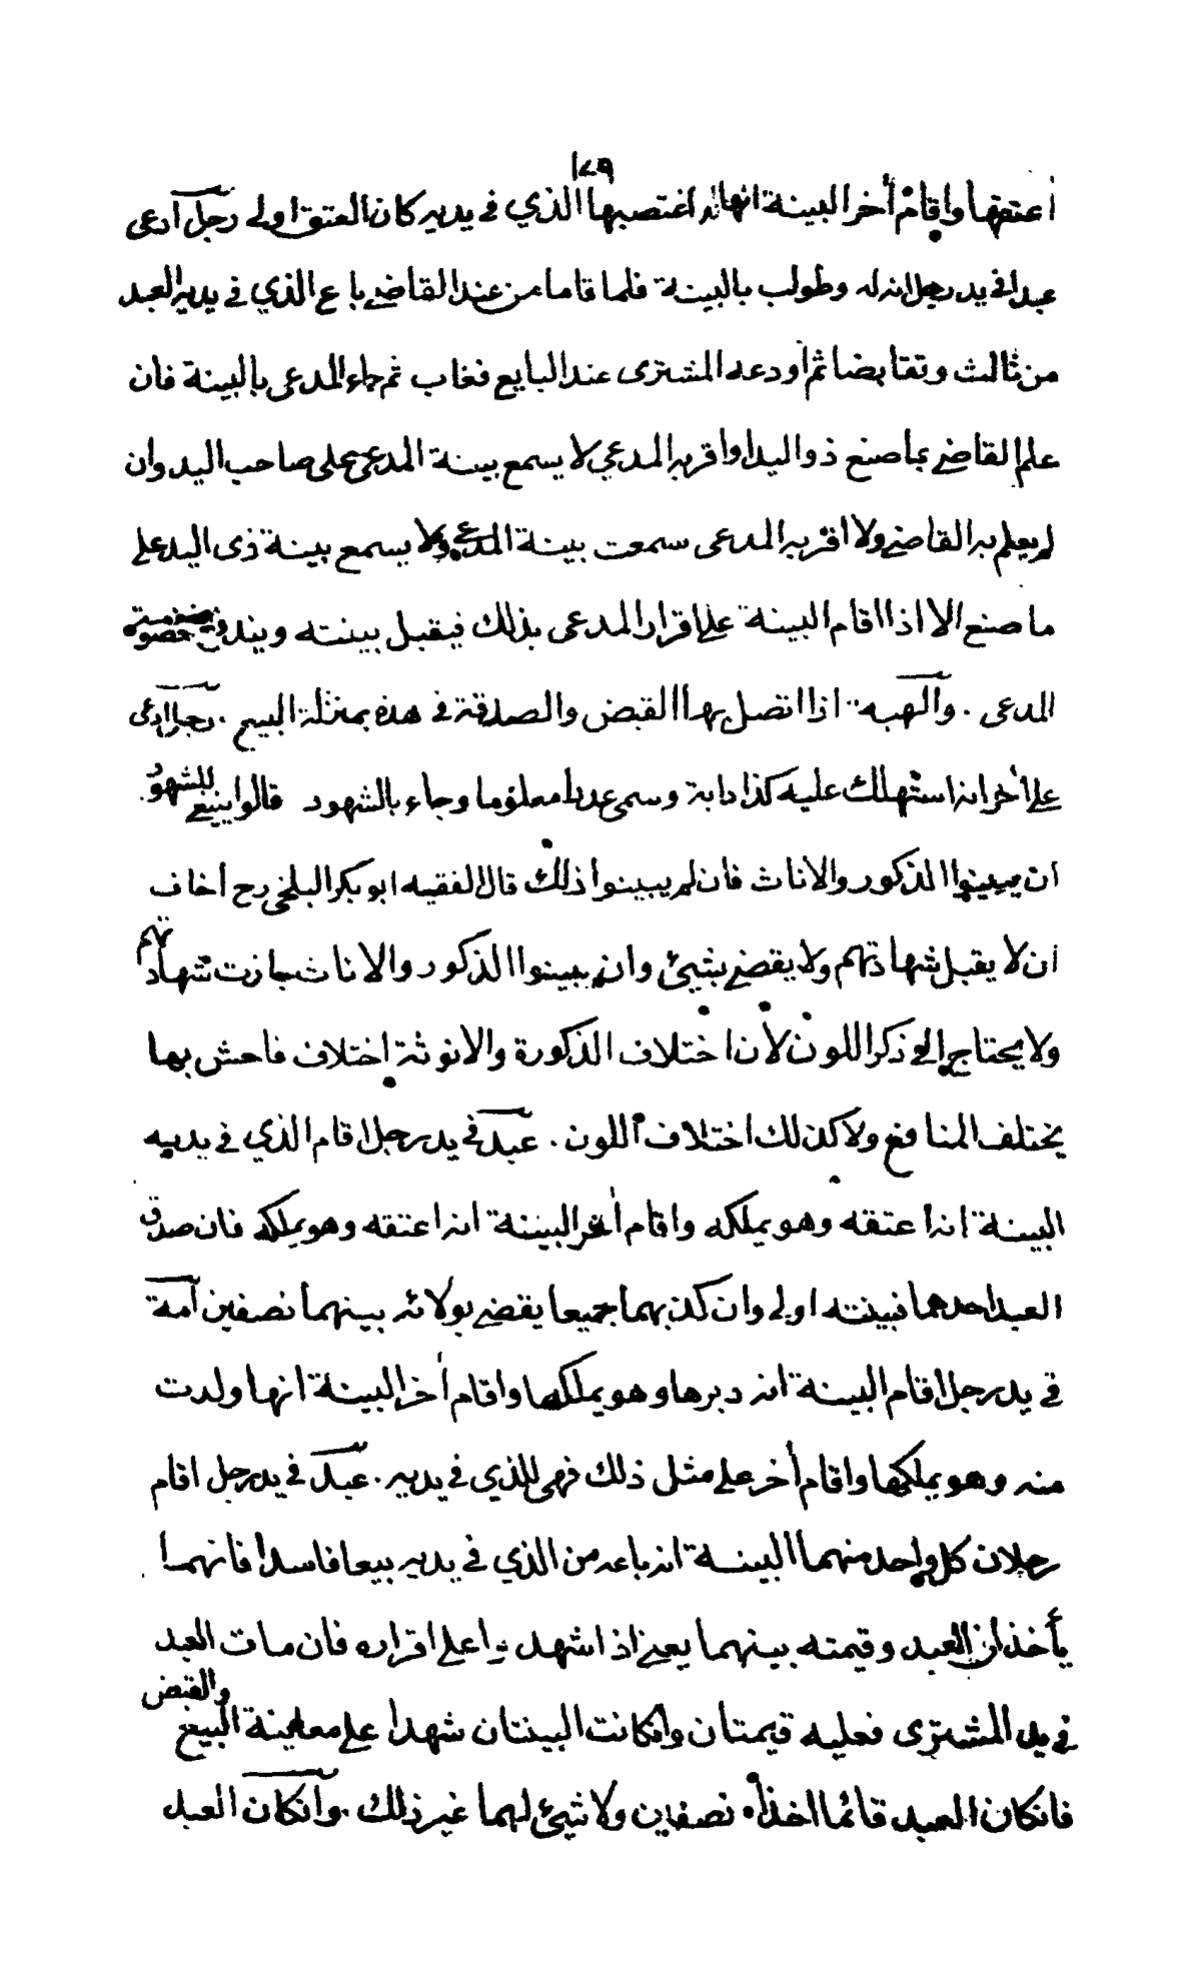 ١٧٩
اعتقها واقام أخر البينة انها له اغتصبها الذي في يديه كان العتق اولى رجل ادعى
عبدا في يد رجل انه له وطولب بالبينة فلما قاما من عند القاضي باع الذي في يديه العبد
من ثالث وتقابضا ثم أودعه المشترى عند البايع فغاب ثم جاء المدعى بالبينة فان
علم القاضي بما صنع ذو اليد او اقر به المدعي لا يسمع بينة المدعى على صاحب اليد وان
لم يعلم به القاضي ولا اقر به المدعى سمعت بينة المدعي ولا يسمع بينة ذى اليد على
ما صنع الا اذا اقام البينة على اقرار المدعى بذلك فيقبل بينته ويندفع خصومة
المدعى . والهبة اذا اتصل بها القبض والصدقة في هذه بمنزلة البيع . رجل ادعى
على أخر انه استهلك عليه كذا دابة وسمى عددا معلوما وجاء بالشهود قالوا ينبغي للشهود
ان يبينوا الذكور والاناث فان لم يبينوا ذلك قال الفقيه ابو بكر البلخي رح أخاف
ان لا يقبل شهادتهم ولا يقضي بشيئ وان بينوا الذكور والاناث جازت شهادتهم
ولا يحتاج الى ذكر اللون لأن اختلاف الذكورة والانوثة اختلاف فاحش بها
يختلف المنافع ولا كذلك اختلاف اللون . عبد في يد رجل اقام الذي في يديه
البينة انه اعتقه وهو يملكه واقام أخر البينة انه اعتقه وهو يملكه فان صدق
العبد احدهما فبينته اولى وان كذبهما جميعا يقضي بولائه بينهما نصفين امة
في يد رجل اقام البينة انه دبرها وهو يملكها واقام أخر البينة انها ولدت
منه وهو يملكها واقام أخر على مثل ذلك فهى للذي في يديه . عبد في يد رجل اقام
رجلان كل واحد منهما البينة انه باعه من الذي في يديه بيعا فاسدا فانهما
يأخذان العبد وقيمته بينهما يعني اذا شهدوا على اقراره فان مات العبد
في يد المشترى فعليه قيمتان وانكانت البينتان شهدا على معاينة البيع والقبض
فانكان العبد قائما اخذاه نصفين ولا شيئ لهما غير ذلك . وانكان العبد